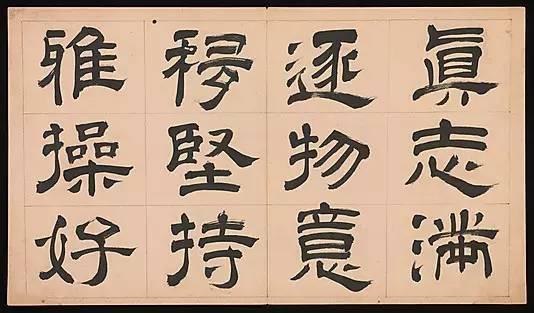 眞志滿
逐物意
移堅持
雅操好